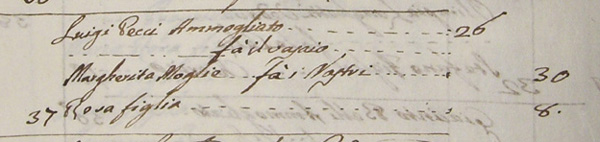 Luigi Pecci Ammogliato 26
fà il vasaio
Margherita Moglie fà i Nastri 30
37 Rosa figlia 8.